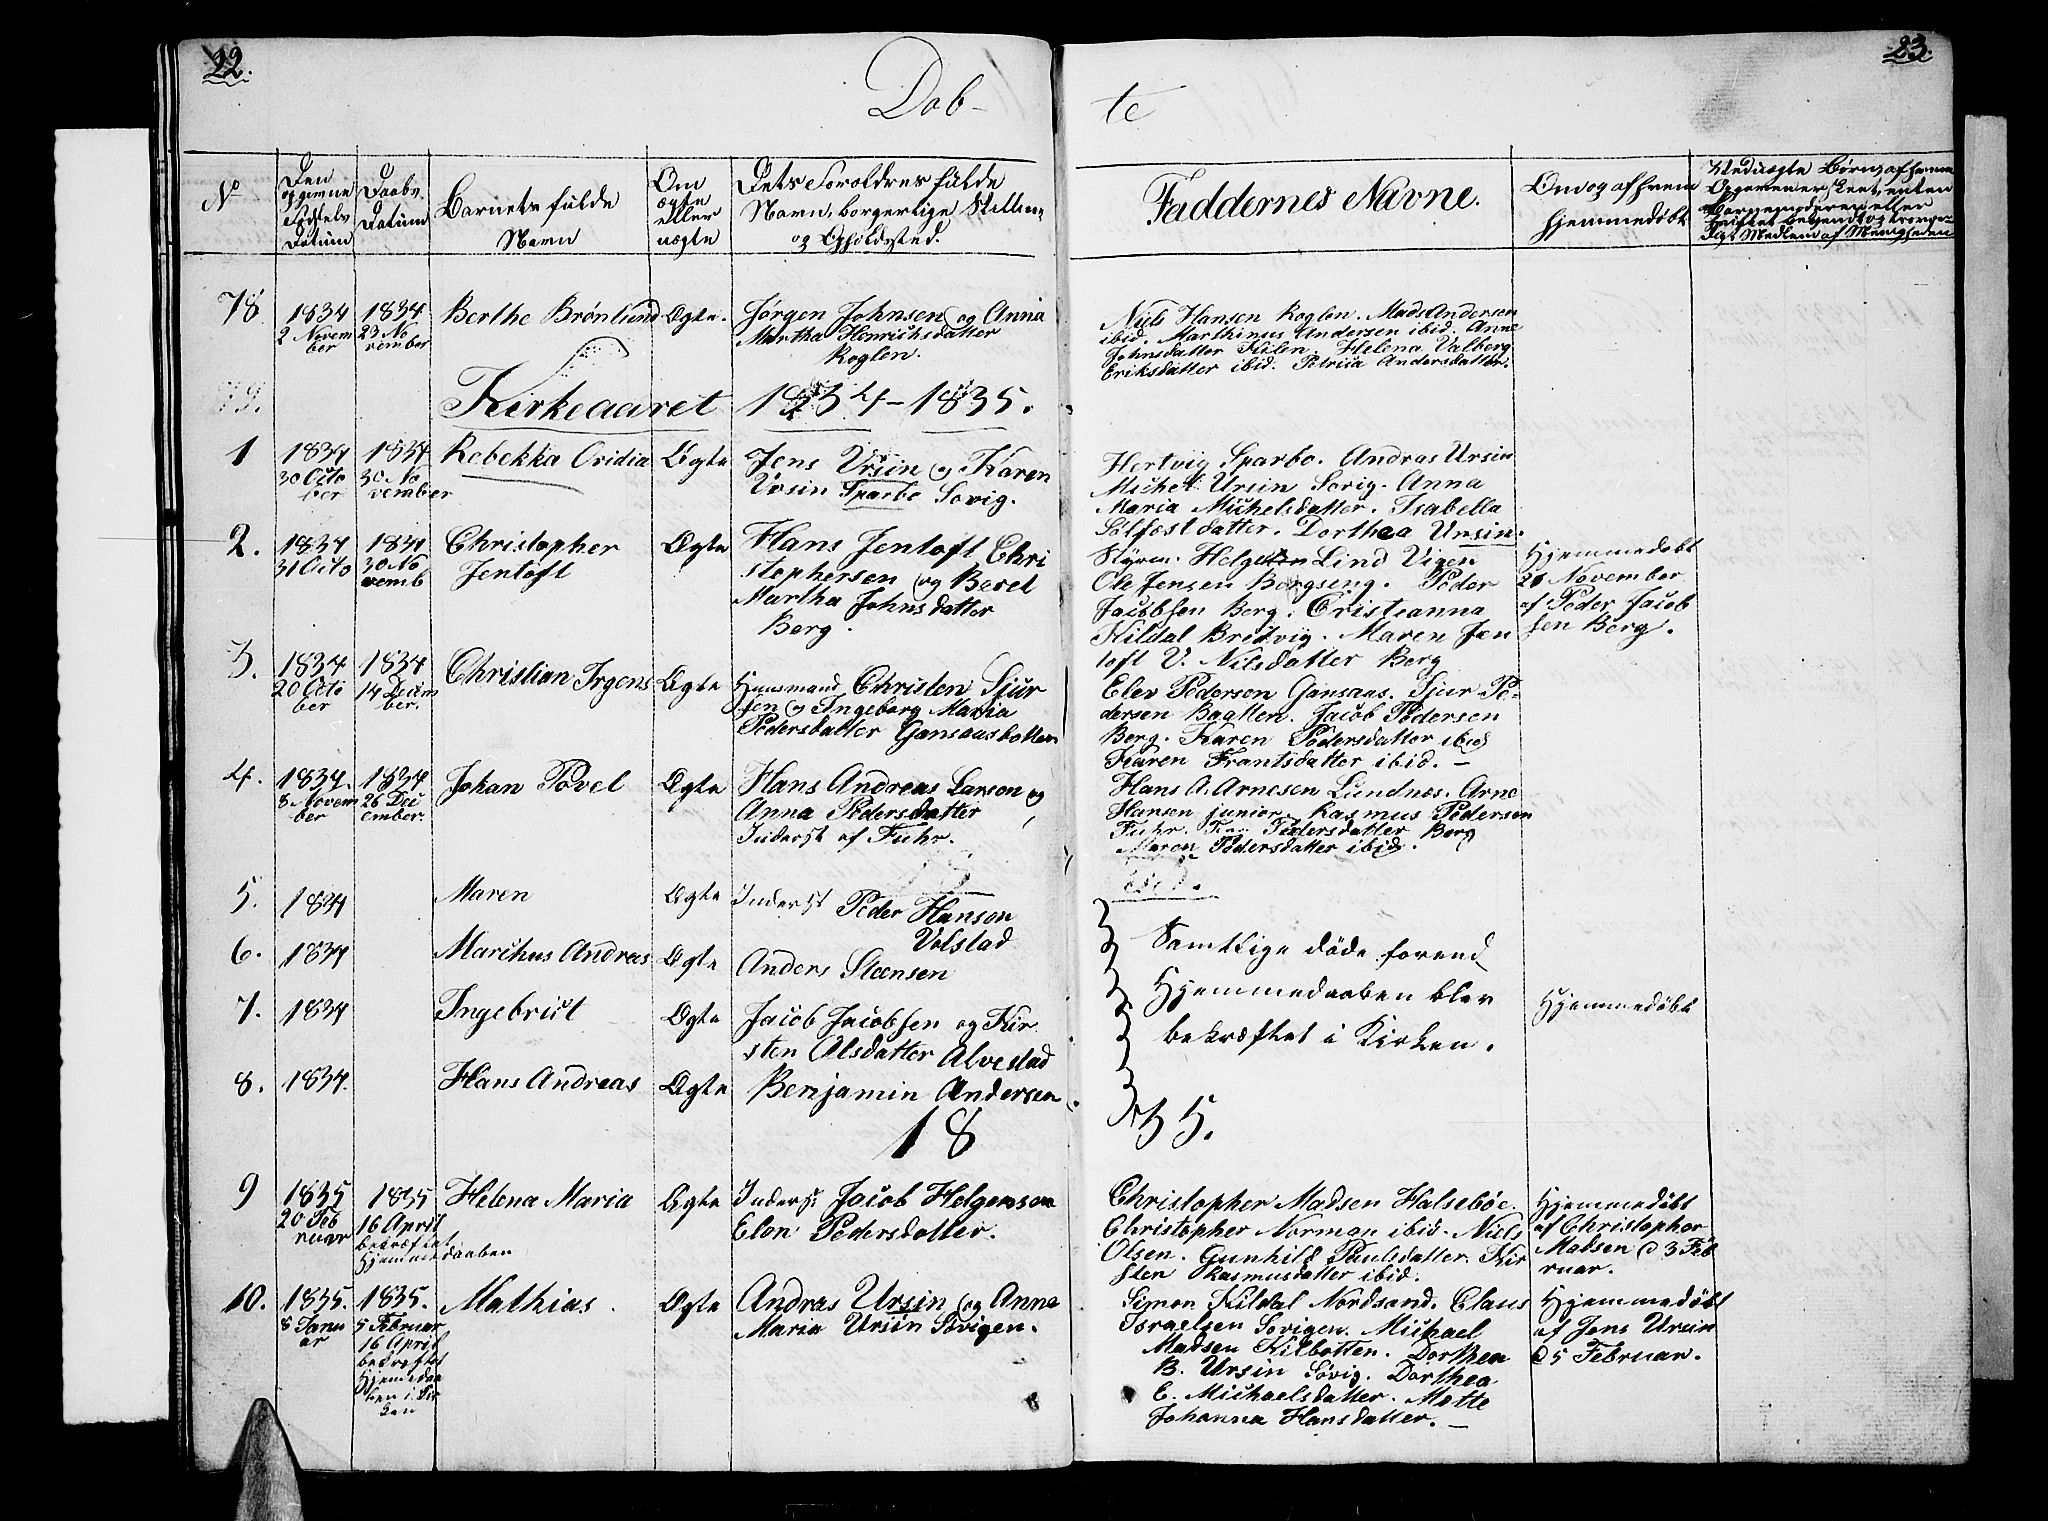 22.
23.
Døb-
te
No
Den
opgivne
Fødsels
Datum
Daabs
Datum
Barnets fulde
Navn
Om
ægte
eller
uægte
Dets Foroldres fulde
Navn, borgerlige Stilling
og Opholdsted.
Faddernes Navne.
Om og af hvem
hjemmedøbt
78
1834
2 Novem
ber
1834
23 No
vember
Berthe Brönlund
Ægte.
Jørgen Johnsen og Anna
Martha Henrichsdatter
Roglen.
Niels Hansen Roglen. Mads Andersen
ibid. Marthinus Andersen ibid. Anne
Johnsdatter Kilen. Helena Valberg
Eriksdatter ibid. Petriia Andersdatter.
79.
Kirkeaaret 1834-1835.
1
1834
30 Octo
ber
1834
30 No
vember
Rebekka Oridia
Ægte
Jens Ursin og Karen
Ursin Sparbo Sovig.
Hertvig Sparbo. Andras Ursin
Michel Ursin Sovig. Anna
Maria Michelsdatter. Isabella
Sølfostdatter. Dorthea Ursin.
2.
1834
31 Octo
1834
30 No
vemb
Christopher
Jentoft
Ægte
Hans Jentoft Chri
stophersen og Berel
Martha Johnsdatter
Berg.
Styrm. Helge Lind Vigen
Ole Jensen Bergseng. Peder
Jacobsen Berg. Cristianna
Kildal Bredvig. Maren Jen
toft V. Nilsdatter Berg
Hjemmedøbt
21 November
af Peder Jacob
sen Berg.
3.
1834
20 Octo
ber
1834
14 Decem
ber.
Christian Irgens
Ægte
Huusmand Christen Sjur
sen og Ingeborg Maria
Pedersdatter Gansaasbotten
Elev Pedersen Gansaas. Sjur Pe-
dersen Bagtten. Jacob Pedersen
Berg. Karen Pedersdatter ibid
Karen Frantsdatter ibid. -
4.
1834.
8 Novem
ber
1834
26 Dec
ember.
Johan Povel
Ægte
Hans Andreas Larson og
Anna Pedersdatter
Inderst af Fuhr.
Hans A. Arnesen Lundnæs. Arne
Hansen junior. Rasmus Pedersen
Fuhr. Pedersdatter Berg
Maren Pedersdatter ibid.
ibid.
5.
1834
Maren
Ægte
Inderst Peder Hanson
Volstad
6.
1834
Marchus Andreas
Ægte
Anders Steensen
7.
1834
Ingebrict
Ægte
Jacob Jacobsen og Kir
sten Olsdatter Alvestad
8.
1834.
Hans Andreas
Ægte
Benjamin Andersen
Samtlige døde forend
Hjemmedaaben blev
bekræftet i Kirken.
Hjemmedøbt
18
35.
9
1835
20 Feb
ruar
1835
16 April
bekræftet
Hjemmedaaben
Helena Maria
Ægte
Inderst Jacob Helgenson
Elen Pedersdatter.
Christopher Madsen Halsebøe.
Christopher Norman ibid. Niels
Olsen. Gunhild Paulsdatter. Kir
sten Rasmusdatter ibid.
Hjemmedøbt
af Christopher
Madsen d 3 Feb
ruar.
10.
1835.
8 Janu
ar
1835.
5 Februar
16 April
bekræftet
Hjemedaa
ben i Kir
ken
Mathias.
Ægte
Andras Ursin og Anne
Maria Ursin Søvigen.
Simon Kildal Nordsand. Claus
Israelsen Sovigen. Michael
Madsen Kilbotten. Dorthea
B. Ursin Søvig. Dorthea
E. Michaelsdatter. Mette
Johanna Hansdatter. -
Hjemmedøbt
af Jens Ursin
d 5 Februar.